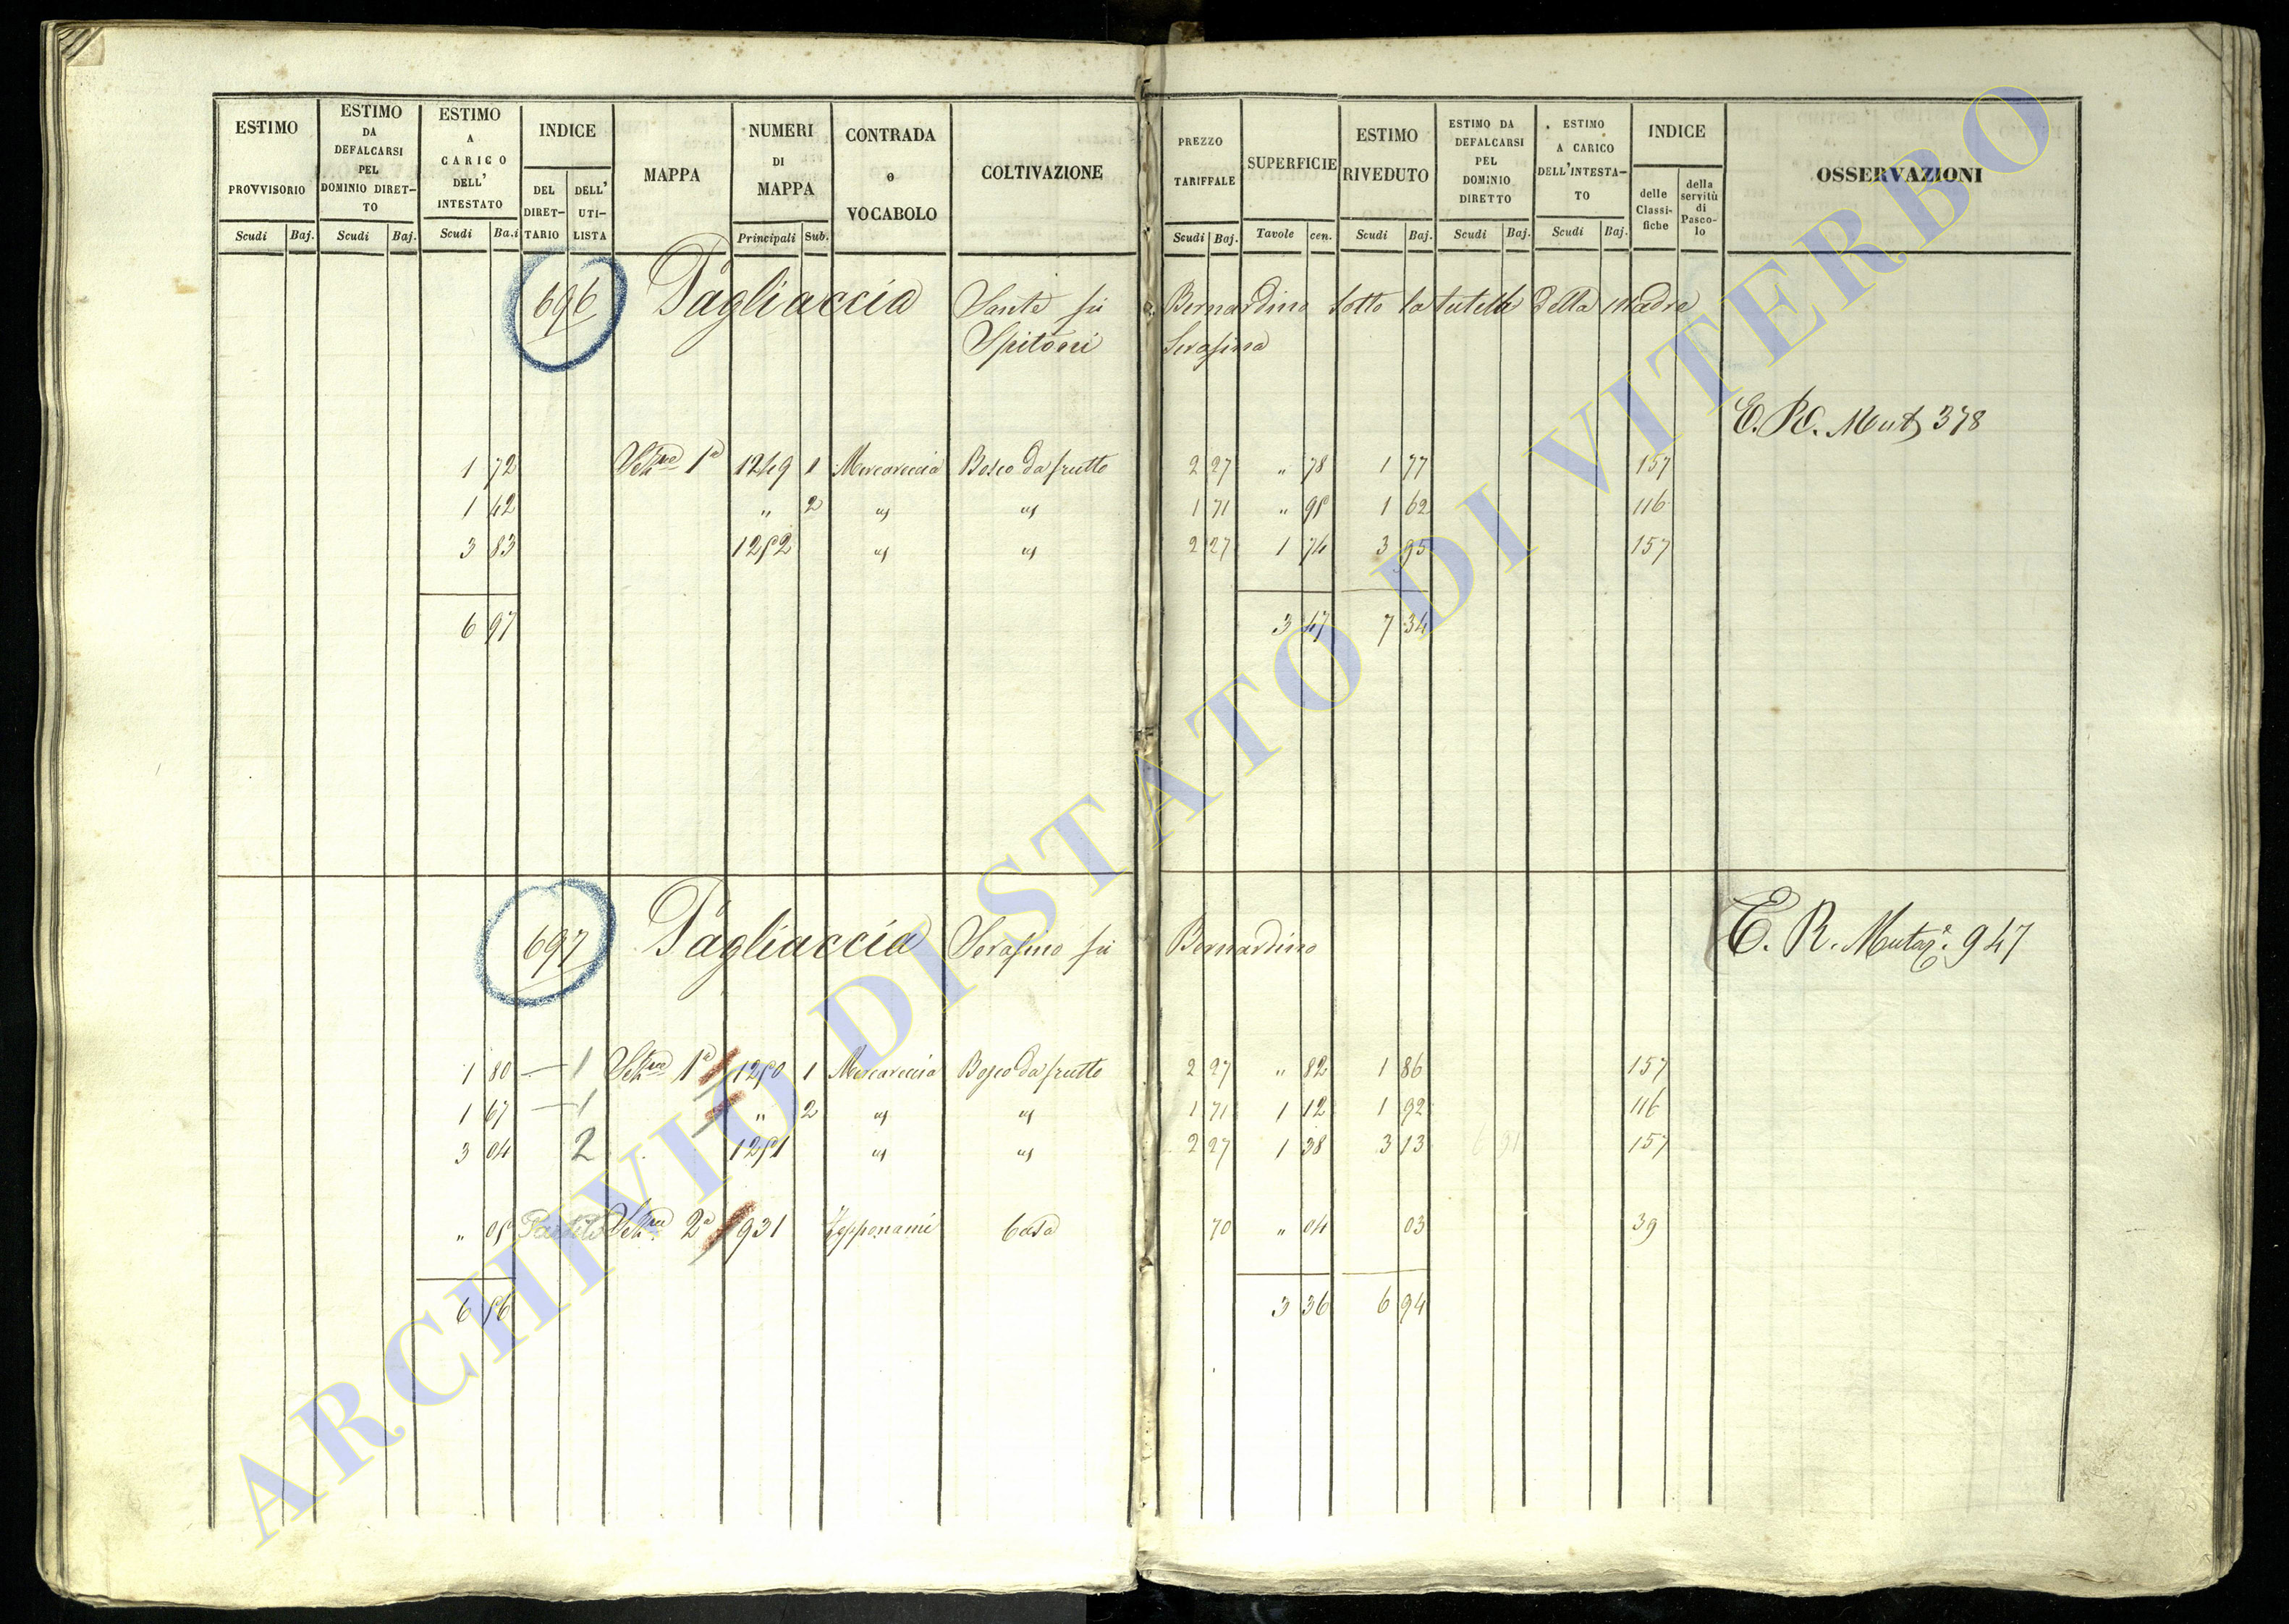 ESTIMO PROVVISORIO
ESTIMO DA DEFALCARSI PEL DOMINIO DIRET- TO
ESTIMO A CARICO DELL' INTESTATO
INDICE
DEL DIRET- TARIO
DELL' UTI- LISTA
MAPPA
NUMERI DI MAPPA
CONTRADA o VOCABOLO
COLTIVAZIONE
PREZZO TARIFFALE
SUPERFICIE
ESTIMO RIVEDUTO
ESTIMO DA DEFALCARSI PEL DOMINIO DIRETTO
ESTIMO A CARICO DELL'INTESTA- TO
INDICE
delle Classi- fiche
della servitù di Pasco- lo
OSSERVAZIONI
Scudi Baj. Scudi Baj. Scudi Ba.i Principali Sub. Scudi Baj. Tavole cen. Scudi Baj. Scudi Baj. Scudi Baj.
696 Pagliaccia Sante fu Bernardino sotto la tutela della Madre
Spitoni Serafina
E. R. Mut 378
1 72 Vet.na 1a 1249 1 Mercareccia Bosco da frutto 2 27 " 78 1 77 157
1 42 " 2 " " 1 71 " 95 1 62 116
3 83 1252 " " 2 27 1 74 3 95 157
6 97 3 47 7 34
697 Pagliaccia Serafino fu Bernardino E. R. Mutaz.e 947
1 80 — 1 Vet.na 1a 1250 1 Mercareccia Bosco da frutto 2 27 " 82 1 86 157
1 67 — 1 " 2 " " 1 71 1 12 1 92 116
3 04 2 1251 " " 2 27 1 38 3 13 157
" 05 Partito Vet.na 2a 931 Zepponami Casa 70 " 04 03 39
6 56 3 36 6 94
ARCHIVIO DI STATO DI VITERBO